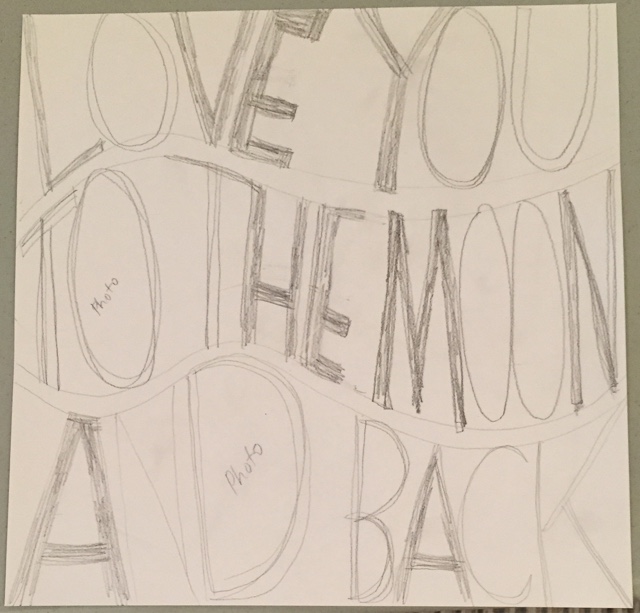 LOVE YOU
TO THE MOON
Photo
AND BACK
Photo